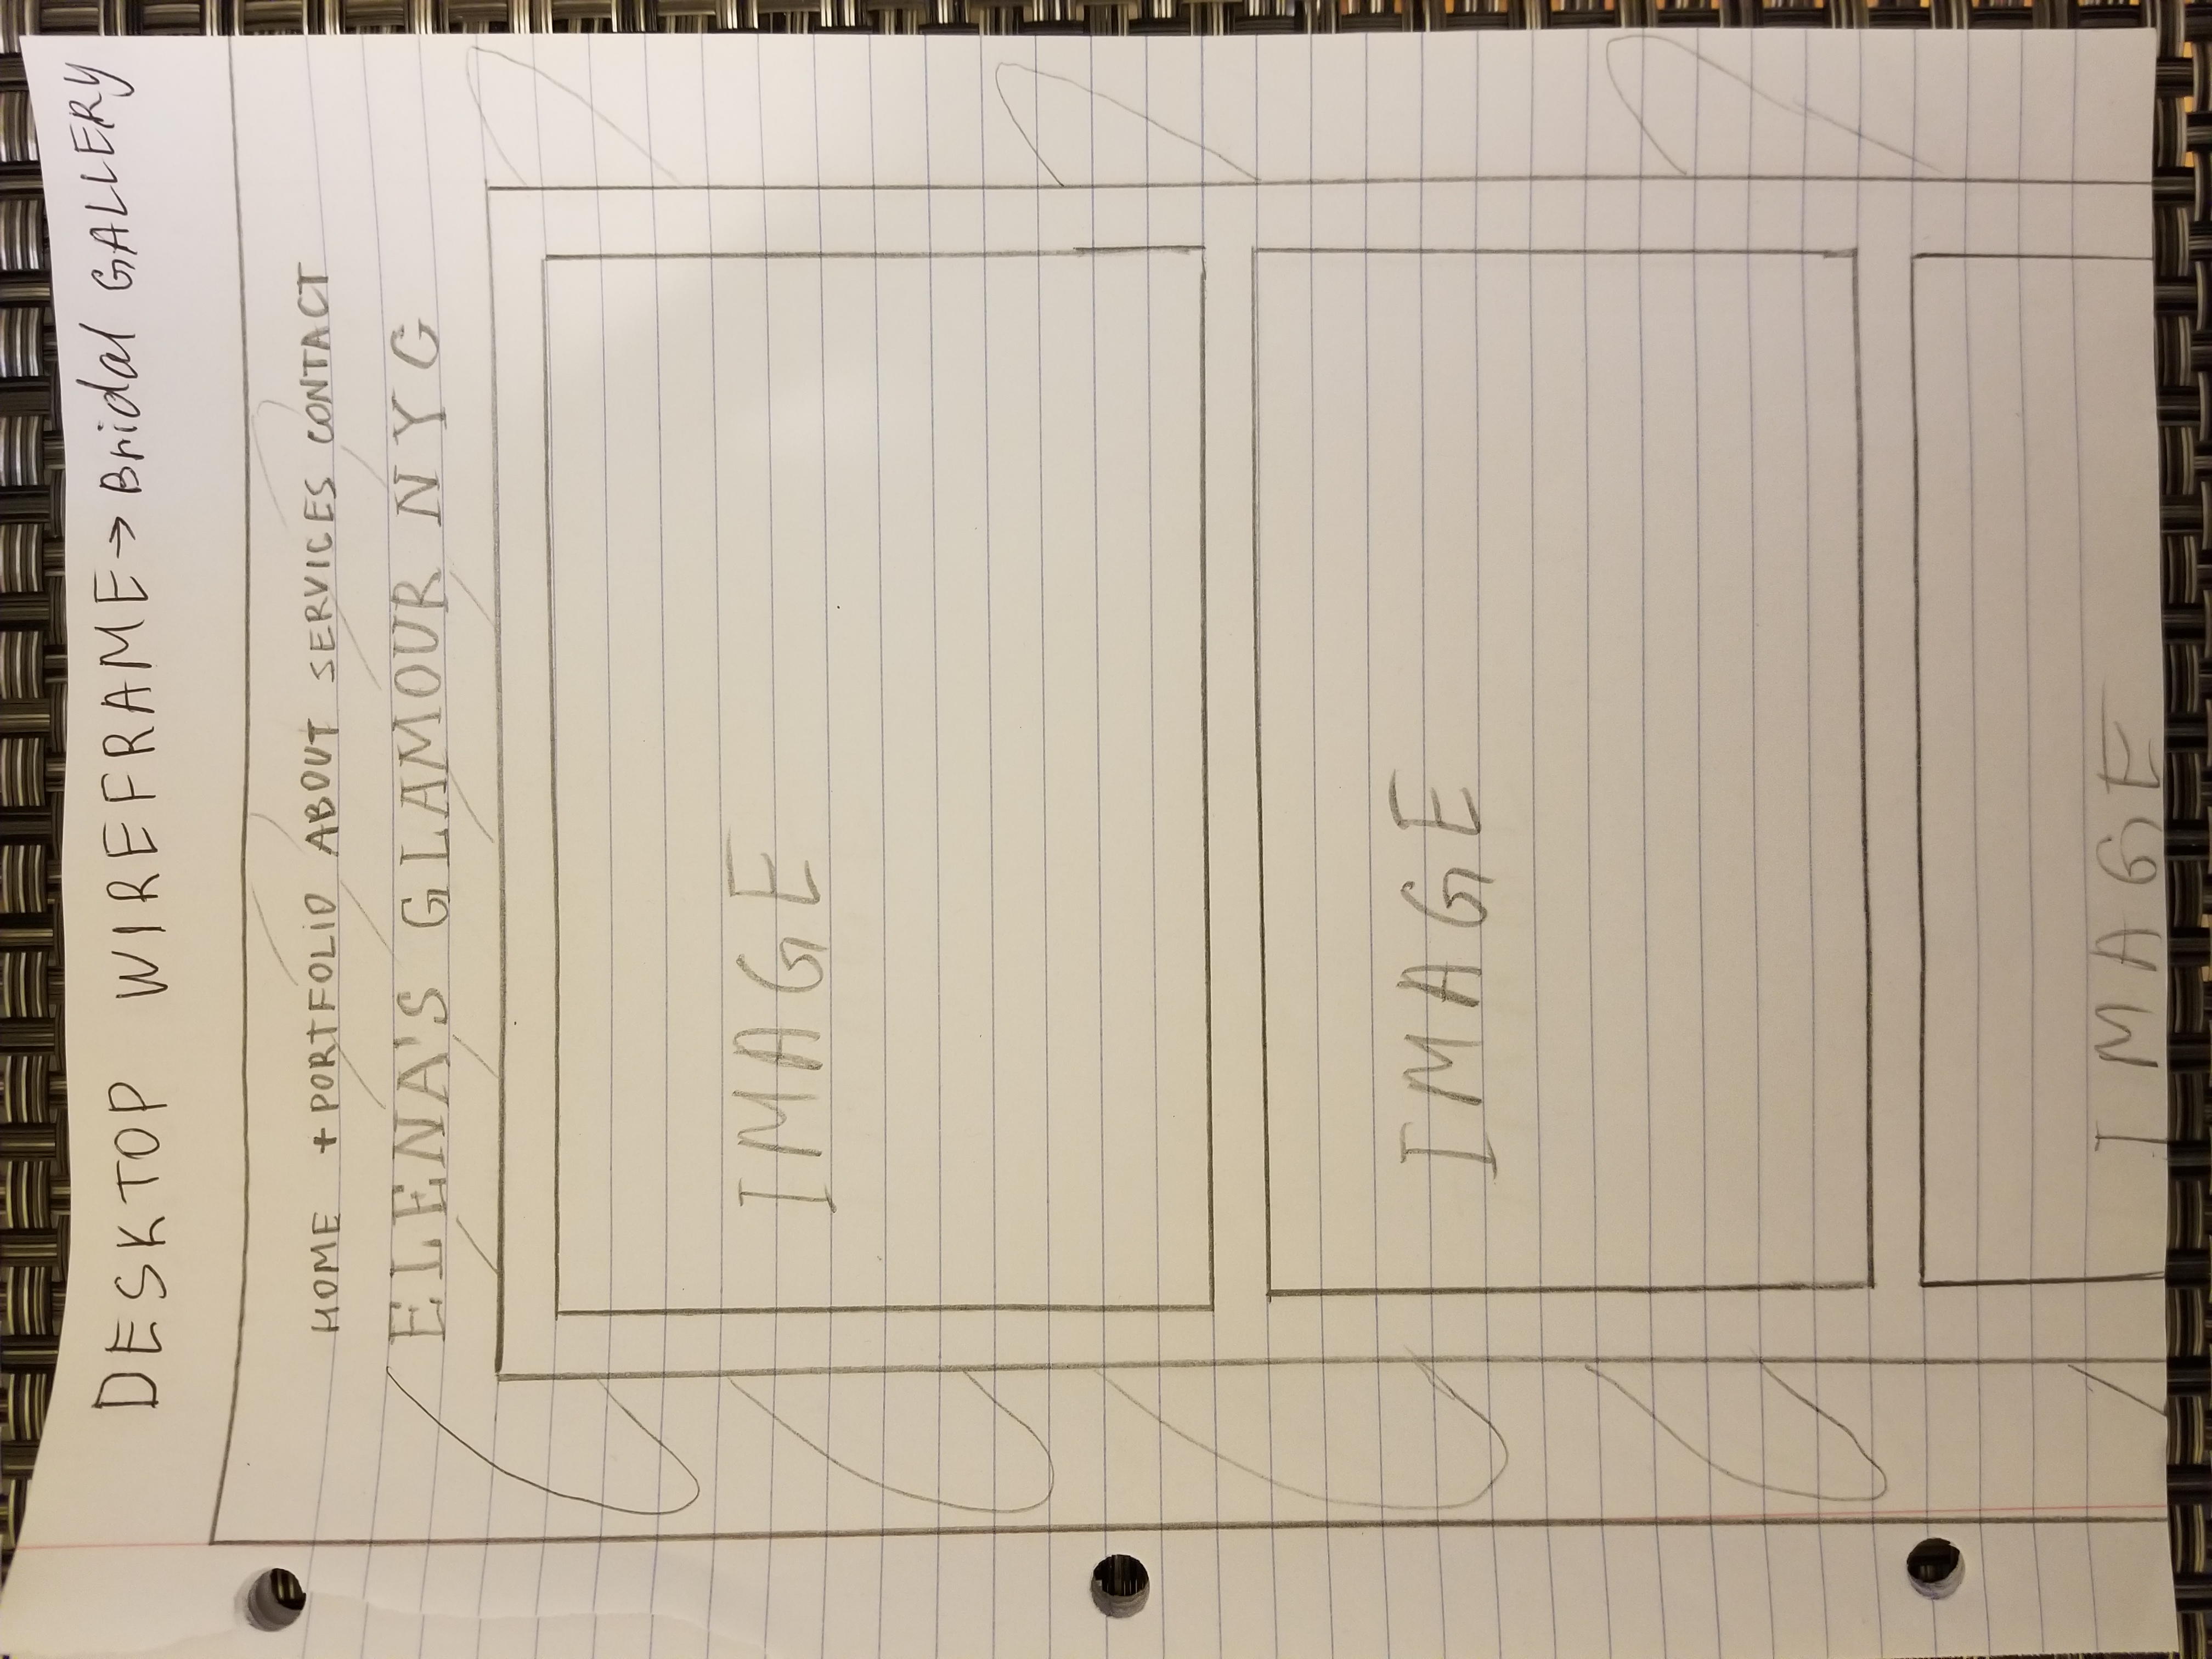 DESKTOP WIREFRAME → Bridal GALLERY
HOME + PORTFOLIO ABOUT SERVICES CONTACT
ELENA'S GLAMOUR NYC
IMAGE
IMAGE
IMAGE